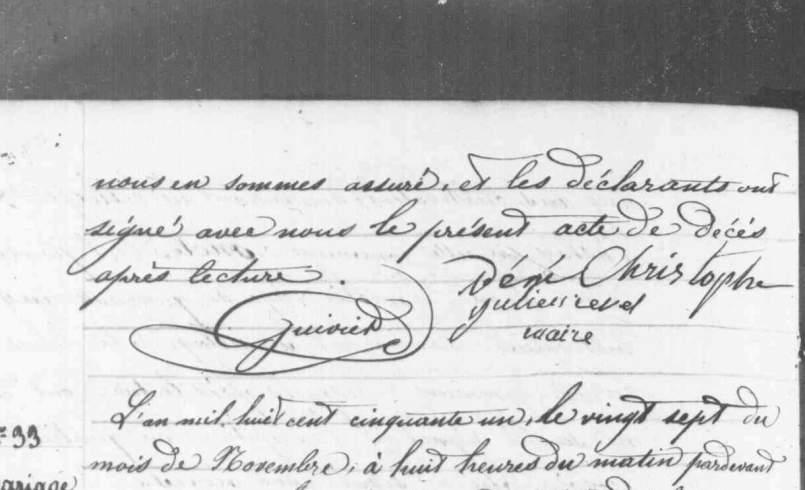 nous en sommes assuré, et les déclarants ont
signé avec nous le présent acte de décès
après lecture.
Christophe
maire
L'an mil huit cent cinquante un, le vingt sept du
33
mois de Novembre, à huit heures du matin pardevant
mariage